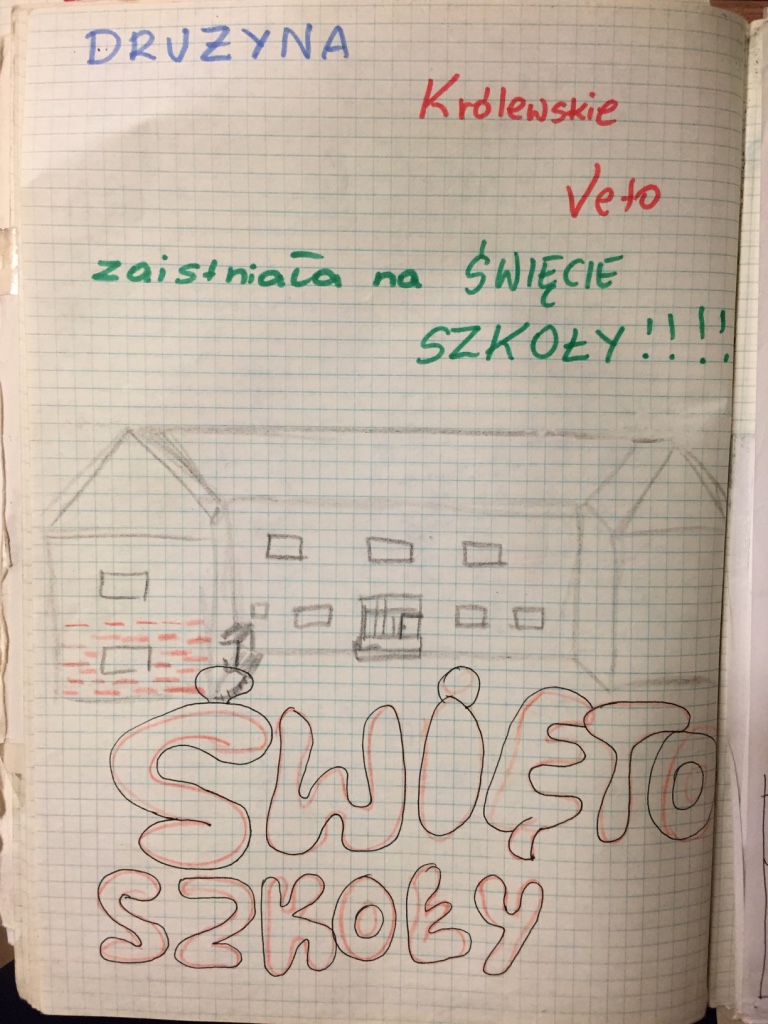 DRUZYNA
Królewskie
Veto
zaistniała na ŚWIĘCIE
SZKOŁY!!!!
ŚWIĘTO
SZKOŁY